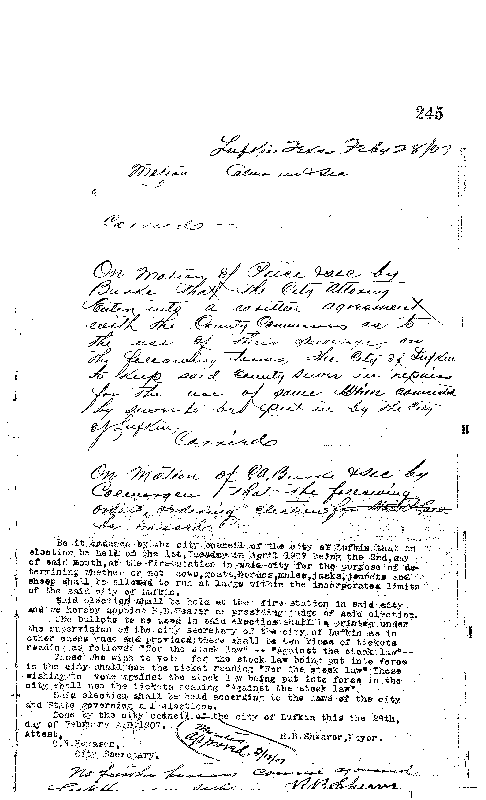 245
Lufkin Texas Feby 28/07
Motion
Carried
On Motion of Price & sec by
Burke that the City Attorney
Enter into a written agreement
with the County Commrs as to
the use of their sewerage on
the following terms, the City of Lufkin
to keep said County Sewer in repairs
for the use of same When connected
by sewers to be put in by the City
of Lufkin.
Carried
On Motion of Burke & sec by
that the following
ordering election for Stock Law
be passed
Be it ordered by the city council of the city of Lufkin that an
election be held on the 1st, Tuesday in April 1907 being the 2nd, day
of said month, at the fire station in said city for the purpose of de-
termining whether or not cows, goats, horses, mules, jacks, jennets and
sheep shall be allowed to run at large within the incorporated limits
of the said city of Lufkin.
Said election shall be held at the fire station in said city
and we hereby appoint Weaver as presiding judge of said election.
The ballots to be used in said election shall be printed under
the supervision of the city secretary of the city of Lufkin as in
other cases made and provided; there shall be two kinds of tickets
reading as follows "For the stock law" -- "Against the stock law"--
Those who wish to vote for the stock law being put into force
in the city shall use the ticket reading "For the stock law". Those
wishing to vote against the stock law being put into force in the
city shall use the tickets reading "Against the stock law".
Said election shall be held according to the laws of the city
and State governing all elections.
Done by the city council of the city of Lufkin this the 28th,
day of February A.D. 1907.
Attest, R.B. Shearer, Mayor.
City Secretary.
Approved
No further business
R B Shearer